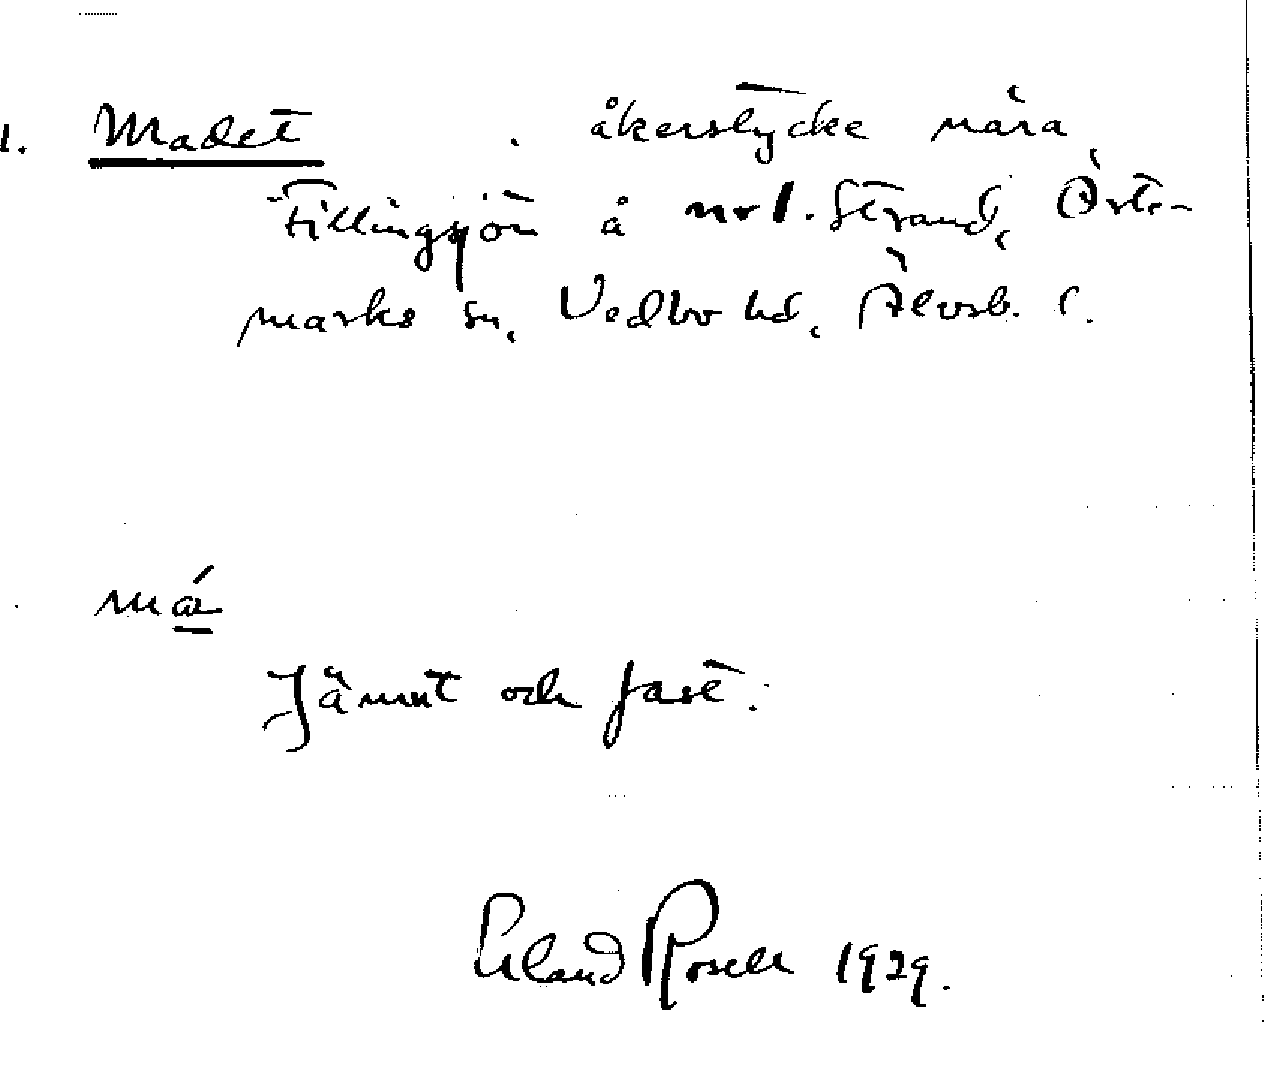 1. Madet . åkerstycke nära
Tillingsjön å nr 1. Strand, Ärte-
marks sn, Vedbo hd, Älvsb. l.
má
Jämnt och fast.
Erland Rosell 1929.